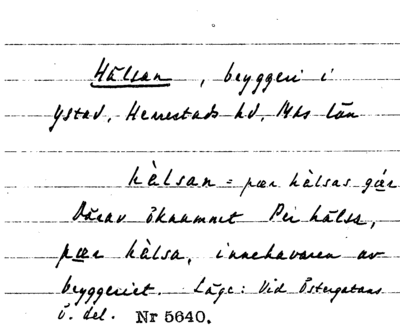 Hälsan, bryggeri i
Ystad, Herrestads hd, Mhs län
hàlsan = pær hàlsas gɑ̊r
Därav öknamnet Per hälsa,
pær hàlsa, innehavaren av
bryggeriet. Läge: Vid Östergatans
ö. del. Nr 5640.